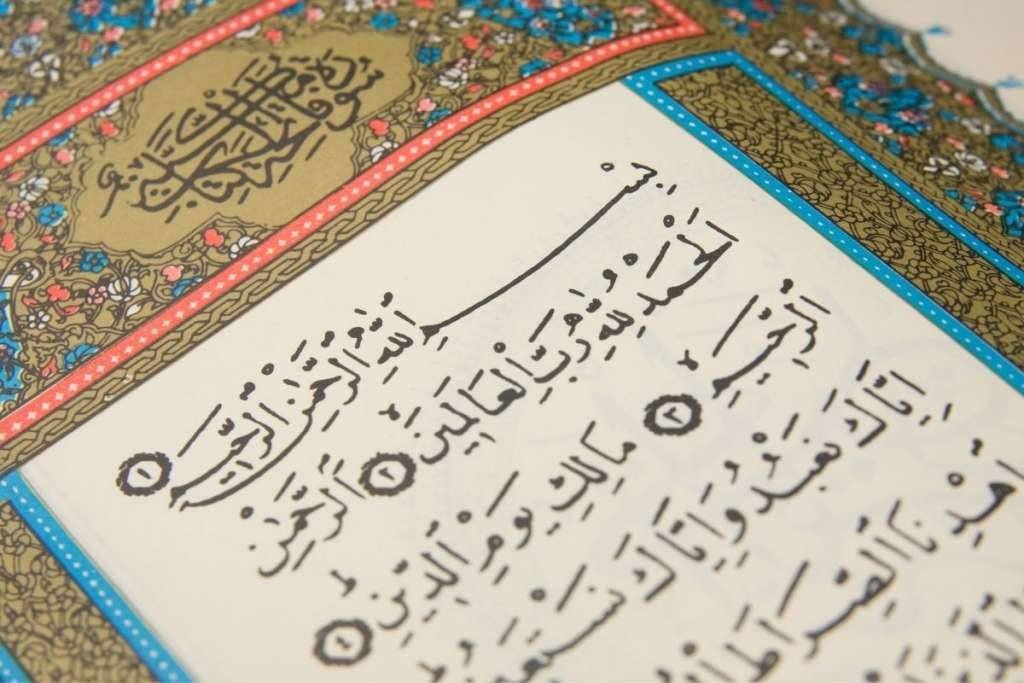 سورة فاتحة الكتاب
بِسْمِ اللّٰهِ الرَّحْمٰنِ الرَّحِيمِ ١
اَلْحَمْدُ لِلّٰهِ رَبِّ الْعَالَمِينَ ٢ اَلرَّحْمٰنِ
الرَّحِيمِ ٣ مَالِكِ يَوْمِ الدِّينِ ٤
اِيَّاكَ نَعْبُدُ وَاِيَّاكَ نَسْتَعِينُ
اِهْدِنَا الصِّرَاطَ